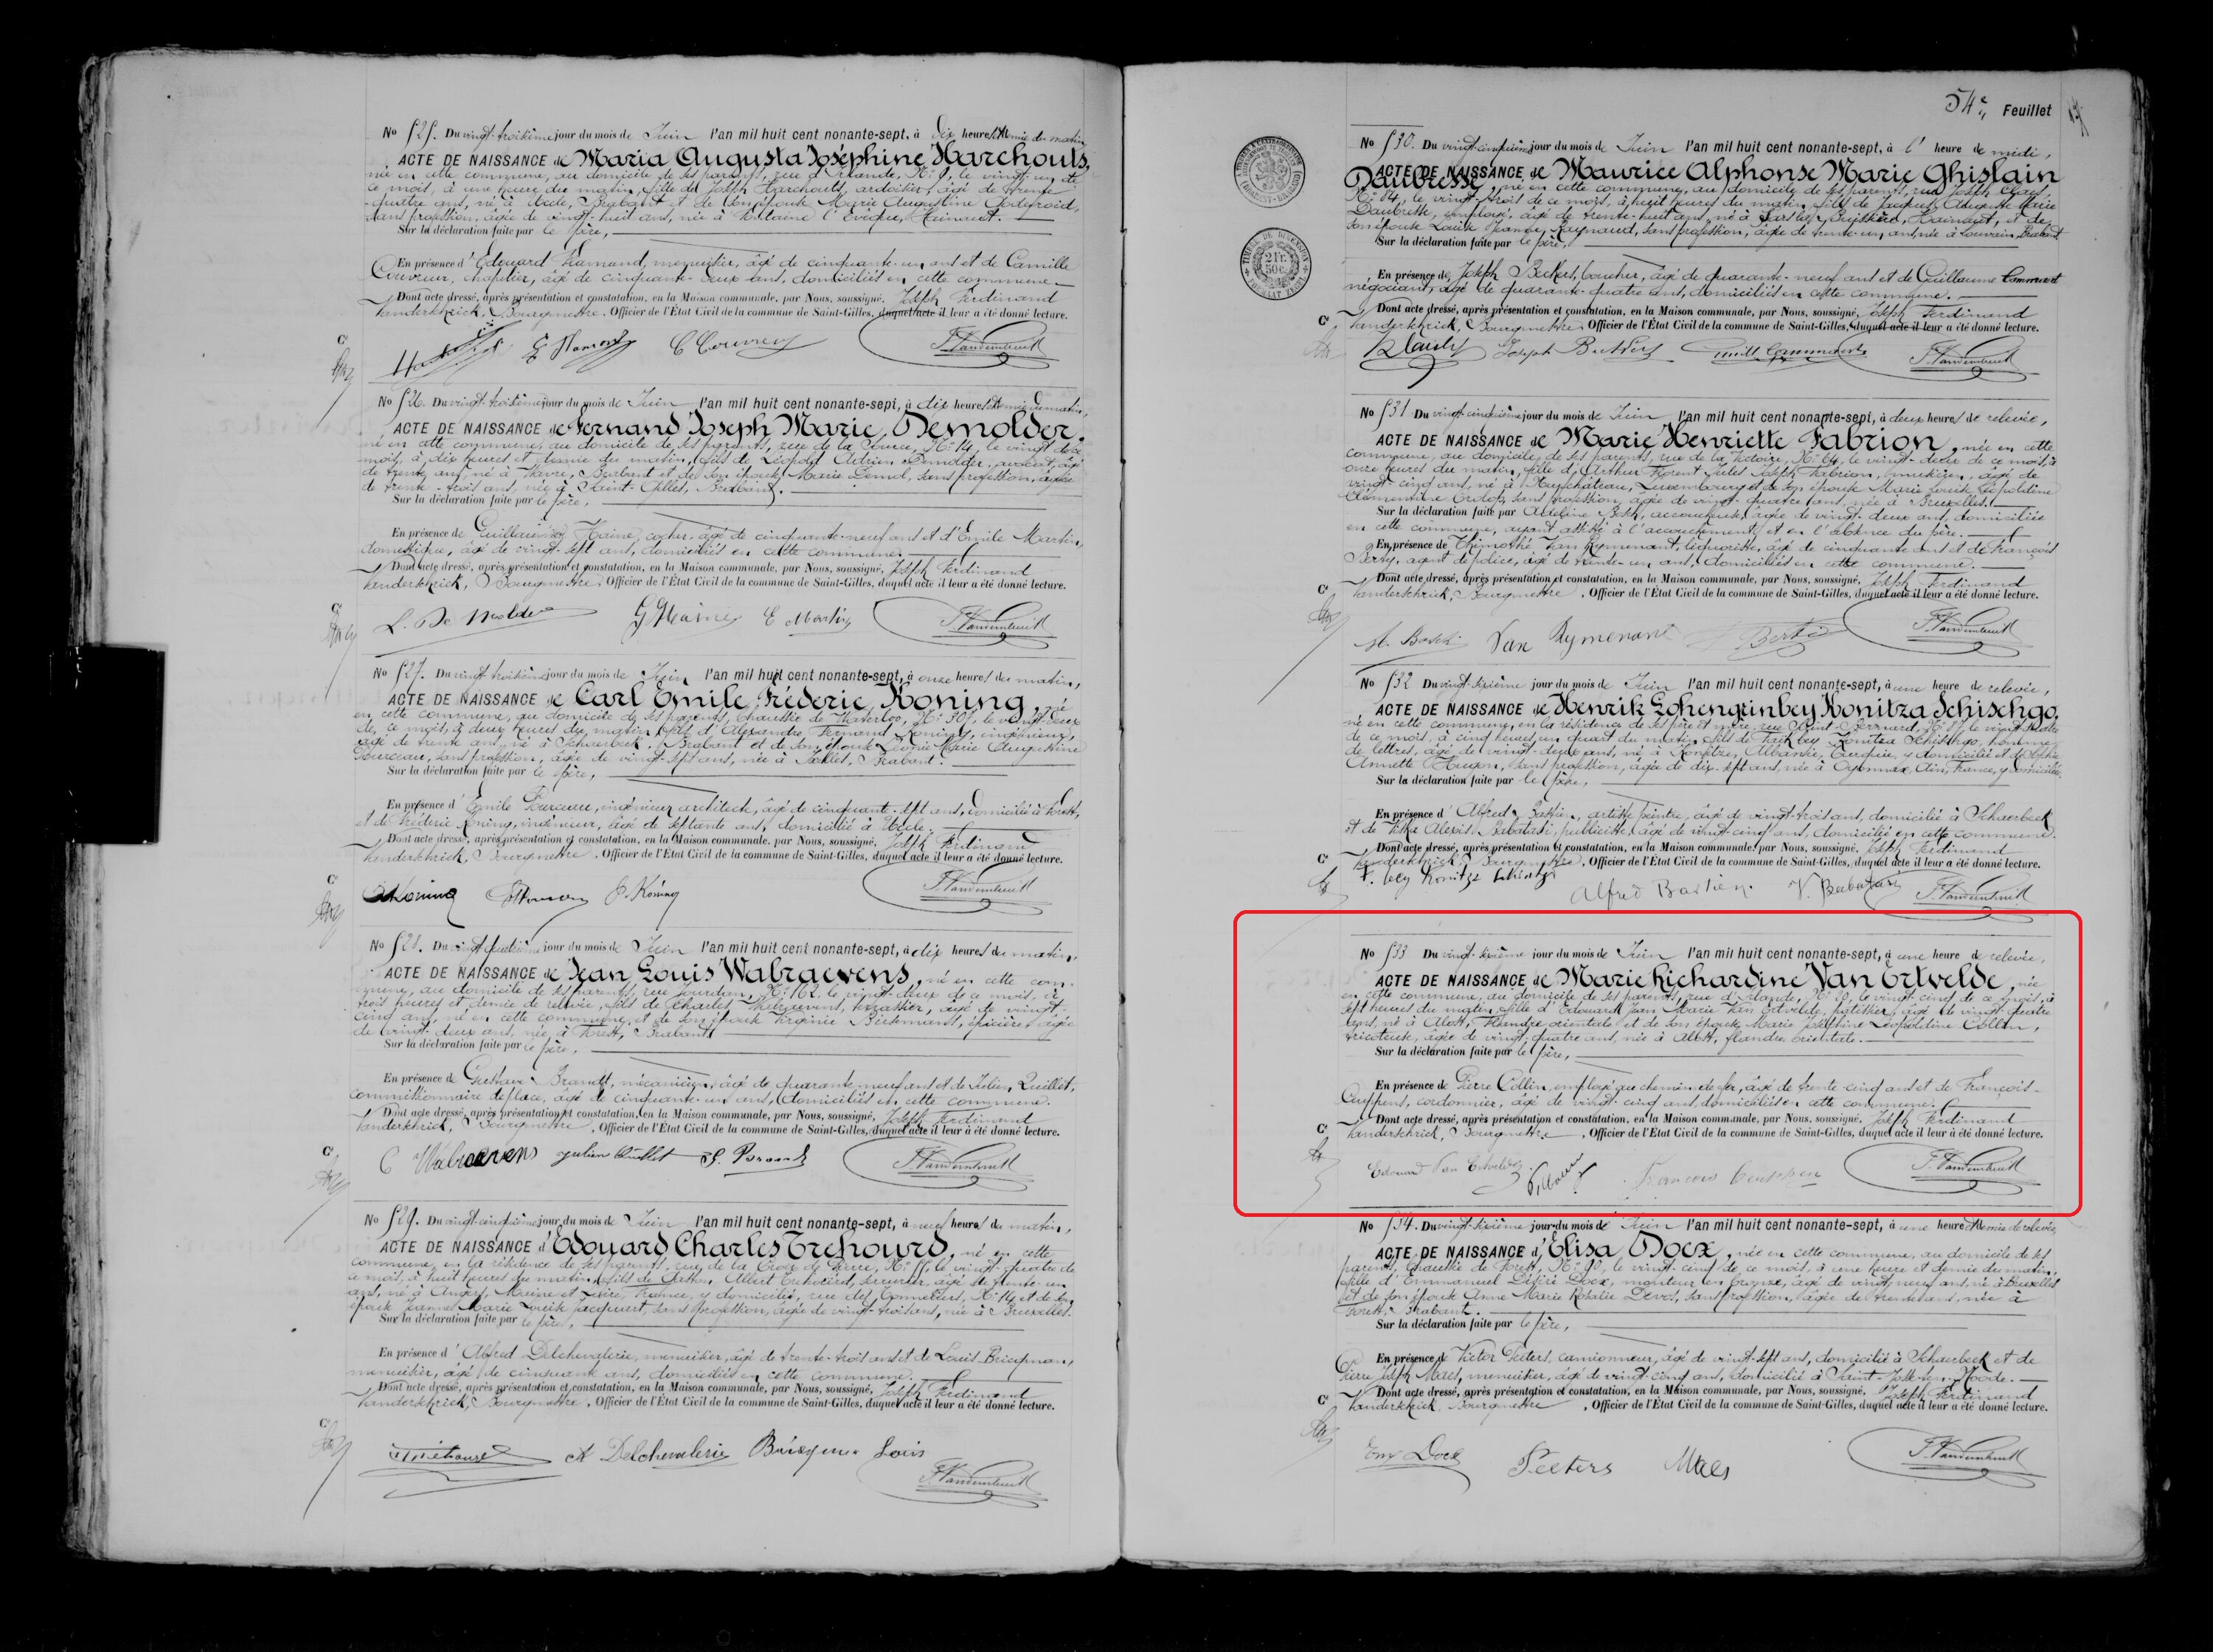 No 525. Du vingt-troisième jour du mois de Juin l'an mil huit cent nonante-sept, à dix heures et demie du matin,
ACTE DE NAISSANCE de Maria Augusta Joséphine Harchouts,
née en cette commune, au domicile de ses parents, rue d'Irlande, No 9, le vingt-un de
ce mois, à une heure du matin, fille de Joseph Harchouts, ardoisier, âgé de trente
-quatre ans, né à Uccle, Brabant et de son épouse Marie Augustine Godefroid,
sans profession, âgée de vingt-huit ans, née à Fontaine l'Evêque, Hainaut.
Sur la déclaration faite par le père,
En présence d'Edouard Hamand, menuisier, âgé de cinquante-un ans et de Camille
Couvreur, chapelier, âgé de cinquante-deux ans, domiciliés en cette commune.
Dont acte dressé, après présentation et constatation, en la Maison communale, par Nous, soussigné, Joseph Ferdinand
Vanderschrick, Bourgmestre, Officier de l'État Civil de la commune de Saint-Gilles, duquel acte il leur a été donné lecture.
C Couvreur F. Vanderschrick
No 526. Du vingt-troisième jour du mois de Juin l'an mil huit cent nonante-sept, à dix heures et demie du matin,
ACTE DE NAISSANCE de Fernand Joseph Marie Demolder,
né en cette commune, au domicile de ses parents, rue de la Source, No 14, le vingt de ce
mois, à dix heures et demie du matin, fils de Léopold Adrien Demolder, avocat, âgé
de trente ans, né à Wavre, Brabant et de son épouse Marie Demol, sans profession, âgée
de trente-trois ans, née à Saint-Gilles, Brabant.
Sur la déclaration faite par le père,
En présence de Guillaume Haine, cocher, âgé de cinquante-neuf ans et d'Emile Martin,
domestique, âgé de vingt-sept ans, domiciliés en cette commune.
Dont acte dressé, après présentation et constatation, en la Maison communale, par Nous, soussigné, Joseph Ferdinand
Vanderschrick, Bourgmestre, Officier de l'État Civil de la commune de Saint-Gilles, duquel acte il leur a été donné lecture.
L. De Molder G Haine E Martin F. Vanderschrick
No 527. Du vingt-troisième jour du mois de Juin l'an mil huit cent nonante-sept, à onze heures du matin,
ACTE DE NAISSANCE de Carl Emile Fréderic Koning, né
en cette commune, au domicile de ses parents, Chaussée de Waterloo, No 305, le vingt-deux
de ce mois, à deux heures du matin, fils d'Alexandre Fernand Koning, ingénieur,
âgé de trente ans, né à Schaerbeek, Brabant et de son épouse Léonie Marie Augustine
sans profession, âgée de vingt-sept ans, née à Ixelles, Brabant.
Sur la déclaration faite par le père,
En présence d'Emile ingénieur architecte, âgé de cinquante-sept ans, domicilié à Forest,
et de Fréderic Koning, ingénieur, âgé de septante ans, domicilié à Uccle.
Dont acte dressé, après présentation et constatation, en la Maison communale, par Nous, soussigné, Joseph Ferdinand
Vanderschrick, Bourgmestre, Officier de l'État Civil de la commune de Saint-Gilles, duquel acte il leur a été donné lecture.
Koning F. Koning F. Vanderschrick
No 528. Du vingt-quatrième jour du mois de Juin l'an mil huit cent nonante-sept, à dix heures du matin,
ACTE DE NAISSANCE de Jean Louis Wabraevens, né en cette com-
mune, au domicile de ses parents, rue Jourdan, No 162, le vingt-deux de ce mois, à
trois heures et demie de relevée, fils de Charles Wabraevens, terrassier, âgé de vingt-
cinq ans, né en cette commune et de son épouse Virginie Beekmans, épicière, âgée
de vingt-deux ans, née à Forest, Brabant.
Sur la déclaration faite par le père,
En présence de Gustave Brandt, mécanicien, âgé de quarante-neuf ans et de Julien Quillet,
commissionnaire de place, âgé de cinquante-un ans, domiciliés en cette commune.
Dont acte dressé, après présentation et constatation, en la Maison communale, par Nous, soussigné, Joseph Ferdinand
Vanderschrick, Bourgmestre, Officier de l'État Civil de la commune de Saint-Gilles, duquel acte il leur à été donné lecture.
C Wabraevens Julien Quillet G. Brandt F. Vanderschrick
No 529. Du vingt-cinquième jour du mois de Juin l'an mil huit cent nonante-sept, à neuf heures du matin,
ACTE DE NAISSANCE d'Edouard Charles Trehourd, né en cette
commune, en la résidence de ses parents, rue de la Croix de Pierre, No 55, le vingt-quatre de
ce mois, à huit heures du matin, fils de Gaston Albert Trehourd, serrurier, âgé de trente-un
ans, né à Angers, Maine et Loire, France, y domicilié, rue des Tonneliers, No 14 et de son
épouse Jeanne Marie Louise Jacquart, sans profession, âgée de vingt-trois ans, née à Bruxelles.
Sur la déclaration faite par le père,
En présence d'Alfred Delchevalerie, menuisier, âgé de trente-trois ans et de Louis Bricqman,
menuisier, âgé de cinquante ans, domiciliés en cette commune.
Dont acte dressé, après présentation et constatation, en la Maison communale, par Nous, soussigné, Joseph Ferdinand
Vanderschrick, Bourgmestre, Officier de l'État Civil de la commune de Saint-Gilles, duquel acte il leur a été donné lecture.
A Delchevalerie Louis F. Vanderschrick
54e Feuillet
No 530. Du vingt-cinquième jour du mois de Juin l'an mil huit cent nonante-sept, à l'heure de midi,
ACTE DE NAISSANCE de Maurice Alphonse Marie Ghislain
Daubresse, né en cette commune, au domicile de ses parents, rue Joseph Claes,
No 84, le vingt-trois de ce mois, à huit heures du matin, fils de Jacques Auguste Marie
Daubresse, employé, âgé de trente-huit ans, né à Hainaut, et de
son épouse Louise Jeanne Raynaud, sans profession, âgée de trente-un ans, née à Louvain, Brabant.
Sur la déclaration faite par le père,
En présence de Joseph Beckers, boucher, âgé de quarante-neuf ans et de Guillaume
négociant, âgé de quarante-quatre ans, domiciliés en cette commune.
Dont acte dressé, après présentation et constatation, en la Maison communale, par Nous, soussigné, Joseph Ferdinand
Vanderschrick, Bourgmestre, Officier de l'État Civil de la commune de Saint-Gilles, duquel acte il leur a été donné lecture.
Joseph Beckers F. Vanderschrick
No 531 Du vingt-cinquième jour du mois de Juin l'an mil huit cent nonante-sept, à deux heures de relevée,
ACTE DE NAISSANCE de Marie Henriette Fabrion, née en cette
commune, au domicile de ses parents, rue de la Victoire, No 64, le vingt-deux de ce mois, à
onze heures du matin, fille d'Arthur Florent Jules Joseph Fabrion, âgé de
vingt-cinq ans, né à Neufchâteau, Luxembourg et de son épouse Marie Louise Léopoldine
Clémentine sans profession, âgée de vingt-quatre ans, née à Bruxelles.
Sur la déclaration faite par Adeline Bosch, accoucheuse, âgée de vingt-deux ans, domiciliée
en cette commune, ayant assisté à l'accouchement et en l'absence du père.
En présence de Thimothé Van Rymenant, liquoriste, âgé de cinquante ans et de François
agent de police, âgé de trente-un ans, domiciliés en cette commune.
Dont acte dressé, après présentation et constatation, en la Maison communale, par Nous, soussigné, Joseph Ferdinand
Vanderschrick, Bourgmestre, Officier de l'État Civil de la commune de Saint-Gilles, duquel acte il leur a été donné lecture.
A. Bosch Van Rymenant F. Vanderschrick
No 532 Du vingt-sixième jour du mois de Juin l'an mil huit cent nonante-sept, à une heure de relevée,
ACTE DE NAISSANCE de Henrik Lohengrinbey Konitza Schischgo,
né en cette commune, en la résidence de ses père et mère, rue Saint-Bernard, No 57, le vingt-quatre
de ce mois, à cinq heures un quart du matin, fils de Faïk bey Konitza Schischgo, homme
de lettres, âgé de vingt-deux ans, né à Konitza, Albanie, Turquie, y domicilié et de
Annette sans profession, âgée de dix-sept ans, née à Oyonnax, Ain, France, y domiciliée.
Sur la déclaration faite par le père,
En présence d'Alfred Bastien, artiste peintre, âgé de vingt-trois ans, domicilié à Schaerbeek
et de Alexis Babatasi, publiciste, âgé de vingt-cinq ans, domicilié en cette commune.
Dont acte dressé, après présentation et constatation, en la Maison communale, par Nous, soussigné, Joseph Ferdinand
Vanderschrick, Bourgmestre, Officier de l'État Civil de la commune de Saint-Gilles, duquel acte il leur a été donné lecture.
F. bey Konitza Alfred Bastien. V. Babatasi F. Vanderschrick
No 533 Du vingt-sixième jour du mois de Juin l'an mil huit cent nonante-sept, à une heure de relevée,
ACTE DE NAISSANCE de Marie Richardine Van Ertvelde, née
en cette commune, au domicile de ses parents, rue d'Irlande, No 20, le vingt-cinq de ce mois, à
sept heures du matin, fille d'Edouard Jean Marie Van Ertvelde, pâtissier, âgé de vingt-quatre
ans, né à Alost, Flandre orientale et de son épouse Marie Joséphine Léopoldine Collin,
tricoteuse, âgée de vingt-quatre ans, née à Alost, Flandre orientale.
Sur la déclaration faite par le père,
En présence de Pierre Collin, employé au chemin de fer, âgé de trente-cinq ans et de François
Cuyppens, cordonnier, âgé de vingt-cinq ans, domiciliés en cette commune.
Dont acte dressé, après présentation et constatation, en la Maison communale, par Nous, soussigné, Joseph Ferdinand
Vanderschrick, Bourgmestre, Officier de l'État Civil de la commune de Saint-Gilles, duquel acte il leur à été donné lecture.
Edouard Van Ertvelde P. Collin F. Vanderschrick
No 534. Du vingt-sixième jour du mois de Juin l'an mil huit cent nonante-sept, à une heure et demie de relevée,
ACTE DE NAISSANCE d'Elisa Docx, née en cette commune, au domicile de ses
parents, Chaussée de Forest, No 90, le vingt-cinq de ce mois, à une heure et demie du matin,
fille d'Emmanuel Désiré Docx, monteur en bronze, âgé de vingt-neuf ans, né à Bruxelles
et de son épouse Anne Marie Rosalie Devos, sans profession, âgée de trente ans, née à
Forest, Brabant.
Sur la déclaration faite par le père,
En présence de Victor Peeters, camionneur, âgé de vingt-sept ans, domicilié à Schaerbeek et de
Pierre Joseph Maes, menuisier, âgé de vingt-cinq ans, domicilié à Saint-Josse-ten-Noode.
Dont acte dressé, après présentation et constatation, en la Maison communale, par Nous, soussigné, Joseph Ferdinand
Vanderschrick, Bourgmestre, Officier de l'État Civil de la commune de Saint-Gilles, duquel acte il leur a été donné lecture.
Em Docx Peeters Maes F. Vanderschrick